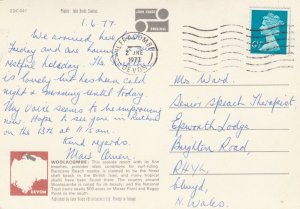 ZDC 447
Photo: John Hinde Studios
JOHN HINDE
ORIGINAL
1.6.77.
We arrived here
Friday and are having
restful holiday. The
is lovely but has been cold
night & morning until today.
My voice seems to be improving
now. Hope to see you in
on the 13th at 11.15am.
Kind regards.
ILFRACOMBE
2 JNE
1977
DEVON
Mrs. Ward.
Senior Speech Therapist.
Epworth Lodge
Brighton Road
RHYL
Clwyd,
N. Wales.
DEVON
WOOLACOMBE: This seaside resort with its fine
beaches, provides ideal conditions for surf-riding.
Barricane Beach nearby is claimed to be the finest
shell beach in the British Isles, and many tropical
shells have been found there. The country around
Woolacombe is noted for its beauty, and the National
Trust owns nearly 500 acres on Morte Point and Baggy
Point to the south.
Published by John Hinde (Distributors) Ltd. Printed in Ireland